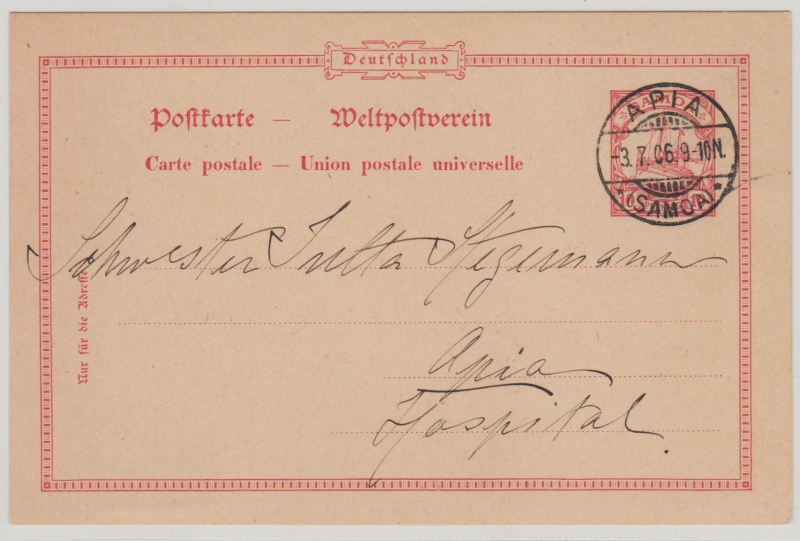 Deutschland
Postkarte — Weltpostverein
Carte postale — Union postale universelle
SAMOA
APIA
-3.7.06.9-10N.
* (SAMOA) *
Schwester Jutta Stegemann
Apia
Hospital.
Nur für die Adresse